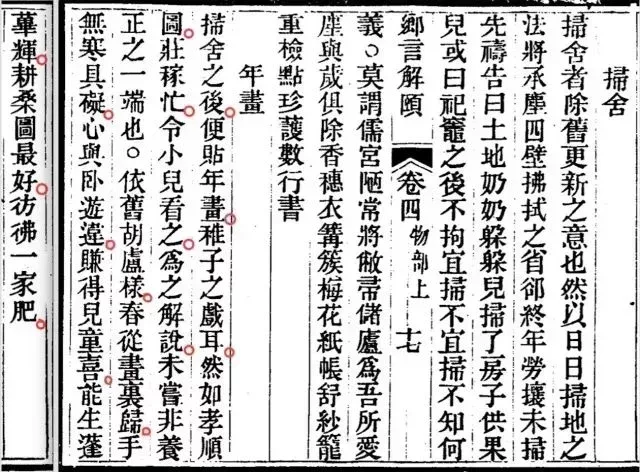 掃舍
掃舍者除舊更新之意也然以日日掃地之
法將承塵四壁拂拭之省卻終年勞攘未掃
先禱告曰土地奶奶躲躲兒掃了房子供果
兒或曰祀竈之後不拘宜掃不宜掃不知何
鄉言解頤 卷四 物部上 十七
義○莫謂儒宮陋常將敝帚儲廬爲吾所愛
塵與歲俱除香穗衣篝簇梅花紙帳舒紗籠
重檢點珍護數行書
年畫
掃舍之後便貼年畫稚子之戲耳然如孝順
圖莊稼忙令小兒看之爲之解說未嘗非養
正之一端也○依舊胡盧樣春從畫裏歸手
無寒具礙心與臥遊違賺得兒童喜能生蓬
蓽輝耕桑圖最好彷彿一家肥